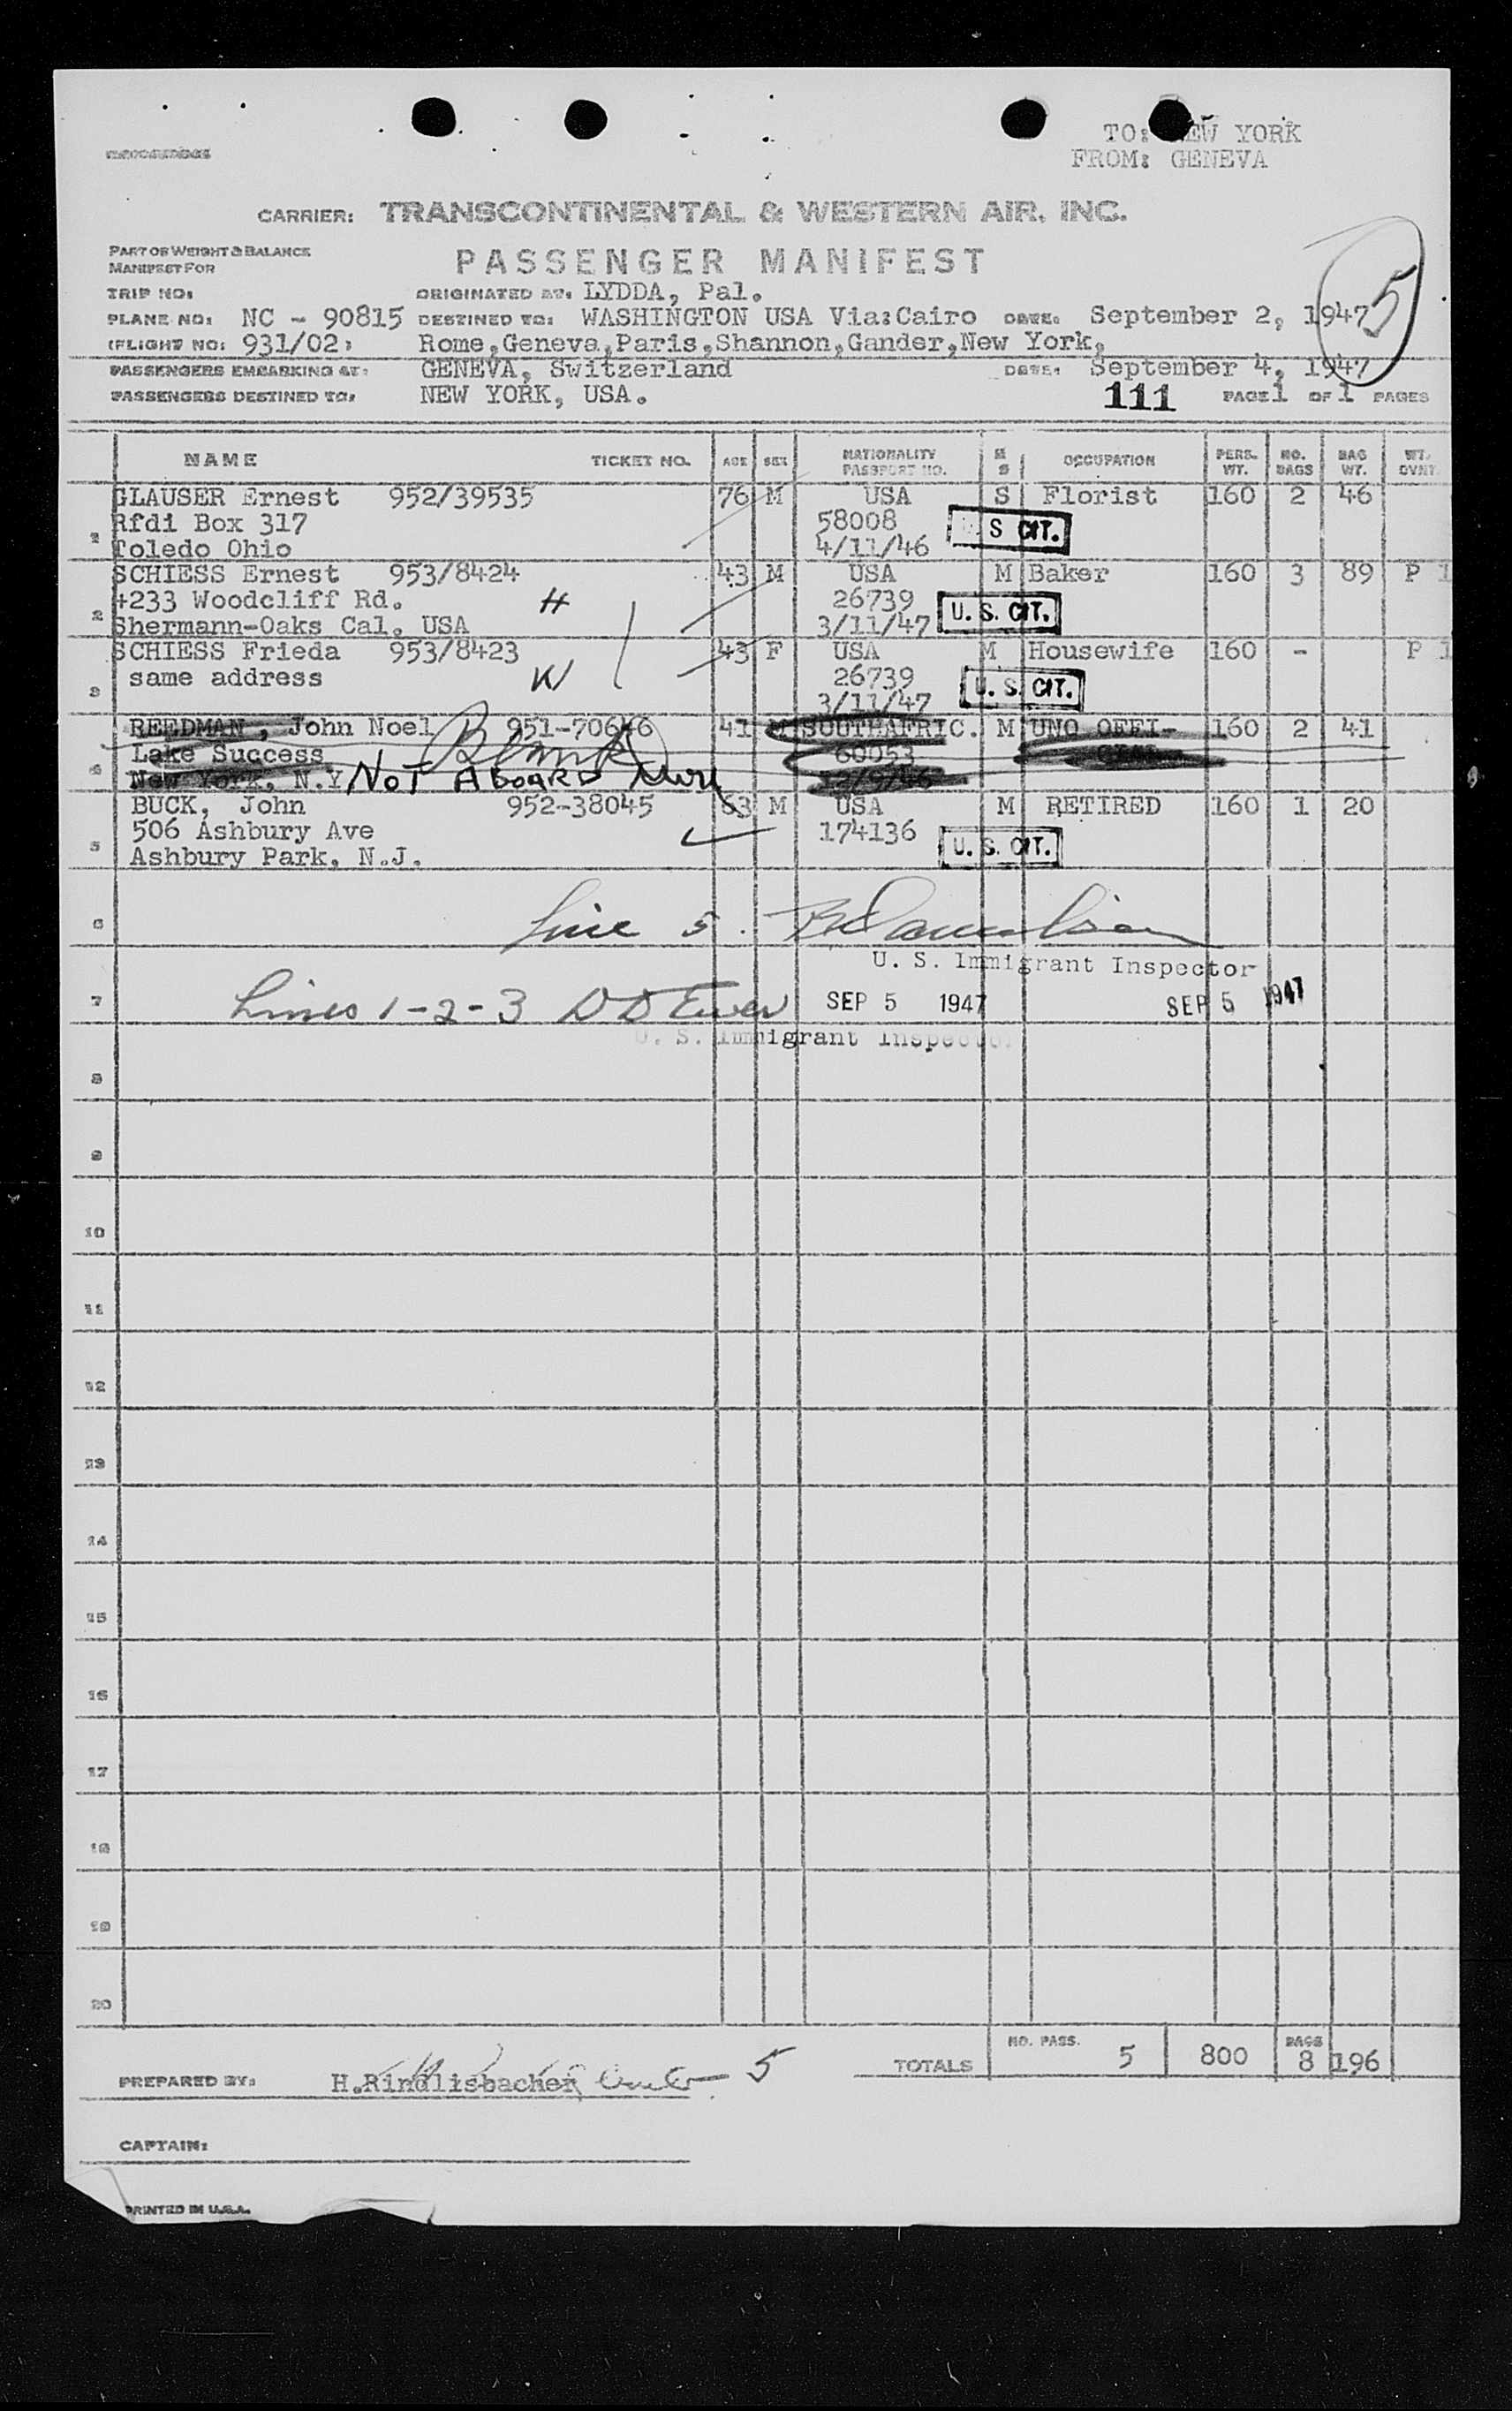 TO: NEW YORK
FROM: GENEVA
CARRIER: TRANSCONTINENTAL & WESTERN AIR, INC.
PART OF WEIGHT & BALANCE
MANIFEST FOR
PASSENGER MANIFEST
TRIP NO: ORIGINATED AT: LYDDA, Pal.
PLANE NO: NC - 90815 DESTINED TO: WASHINGTON USA Via:Cairo DATE: September 2, 1947 5
(FLIGHT NO: 931/02) Rome,Geneva,Paris,Shannon,Gander,New York,
PASSENGERS EMBARKING AT: GENEVA, Switzerland DATE: September 4, 1947
PASSENGERS DESTINED TO: NEW YORK, USA. 111 PAGE 1 OF 1 PAGES
NAME TICKET NO. AGE SEX NATIONALITY PASSPORT NO. M S OCCUPATION PERS. WT. NO. BAGS BAG WT. WT. OVNT.
GLAUSER Ernest 952/39535 76 M USA S Florist 160 2 46
Rfdi Box 317 58008 S CIT.
1 Toledo Ohio 4/11/46
SCHIESS Ernest 953/8424 43 M USA M Baker 160 3 89 P 1
4233 Woodcliff Rd. H 26739 U. S. CIT.
2 Shermann-Oaks Cal. USA 3/11/47
SCHIESS Frieda 953/8423 43 F USA M Housewife 160 - P 1
same address W 26739 U. S. CIT.
3 3/11/47
REEDMAN, John Noel 951-70646 41 M SOUTHAFRIC. M UNO OFFI- 160 2 41
Lake Success Blank 60053 CIAL
4 New York, N.Y NOT ABOARD
BUCK, John 952-38045 63 M USA M RETIRED 160 1 20
506 Ashbury Ave 174136 U. S. CIT.
5 Ashbury Park, N.J.
6 Line 5.
U. S. Immigrant Inspector
7 Lines 1-2-3 SEP 5 1947 SEP 5 1947
U. S. Immigrant Inspector
8
9
10
11
12
13
14
15
16
17
18
19
20
TOTALS NO. PASS. 5 800 BAGS 8 196
PREPARED BY: H.Rindlisbacher 5
CAPTAIN:
PRINTED IN U.S.A.